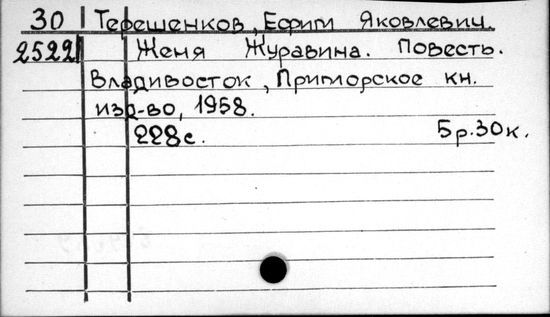 30 Терешенков, Ефим Яковлевич.
2522 Женя Журавина. Повесть.
Владивосток, Приморское кн.
изд-во, 1958.
228с. 5р.30к.